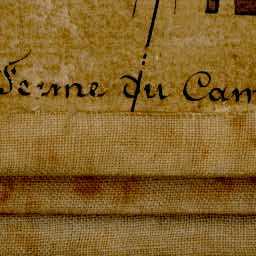 Ferme du Cam